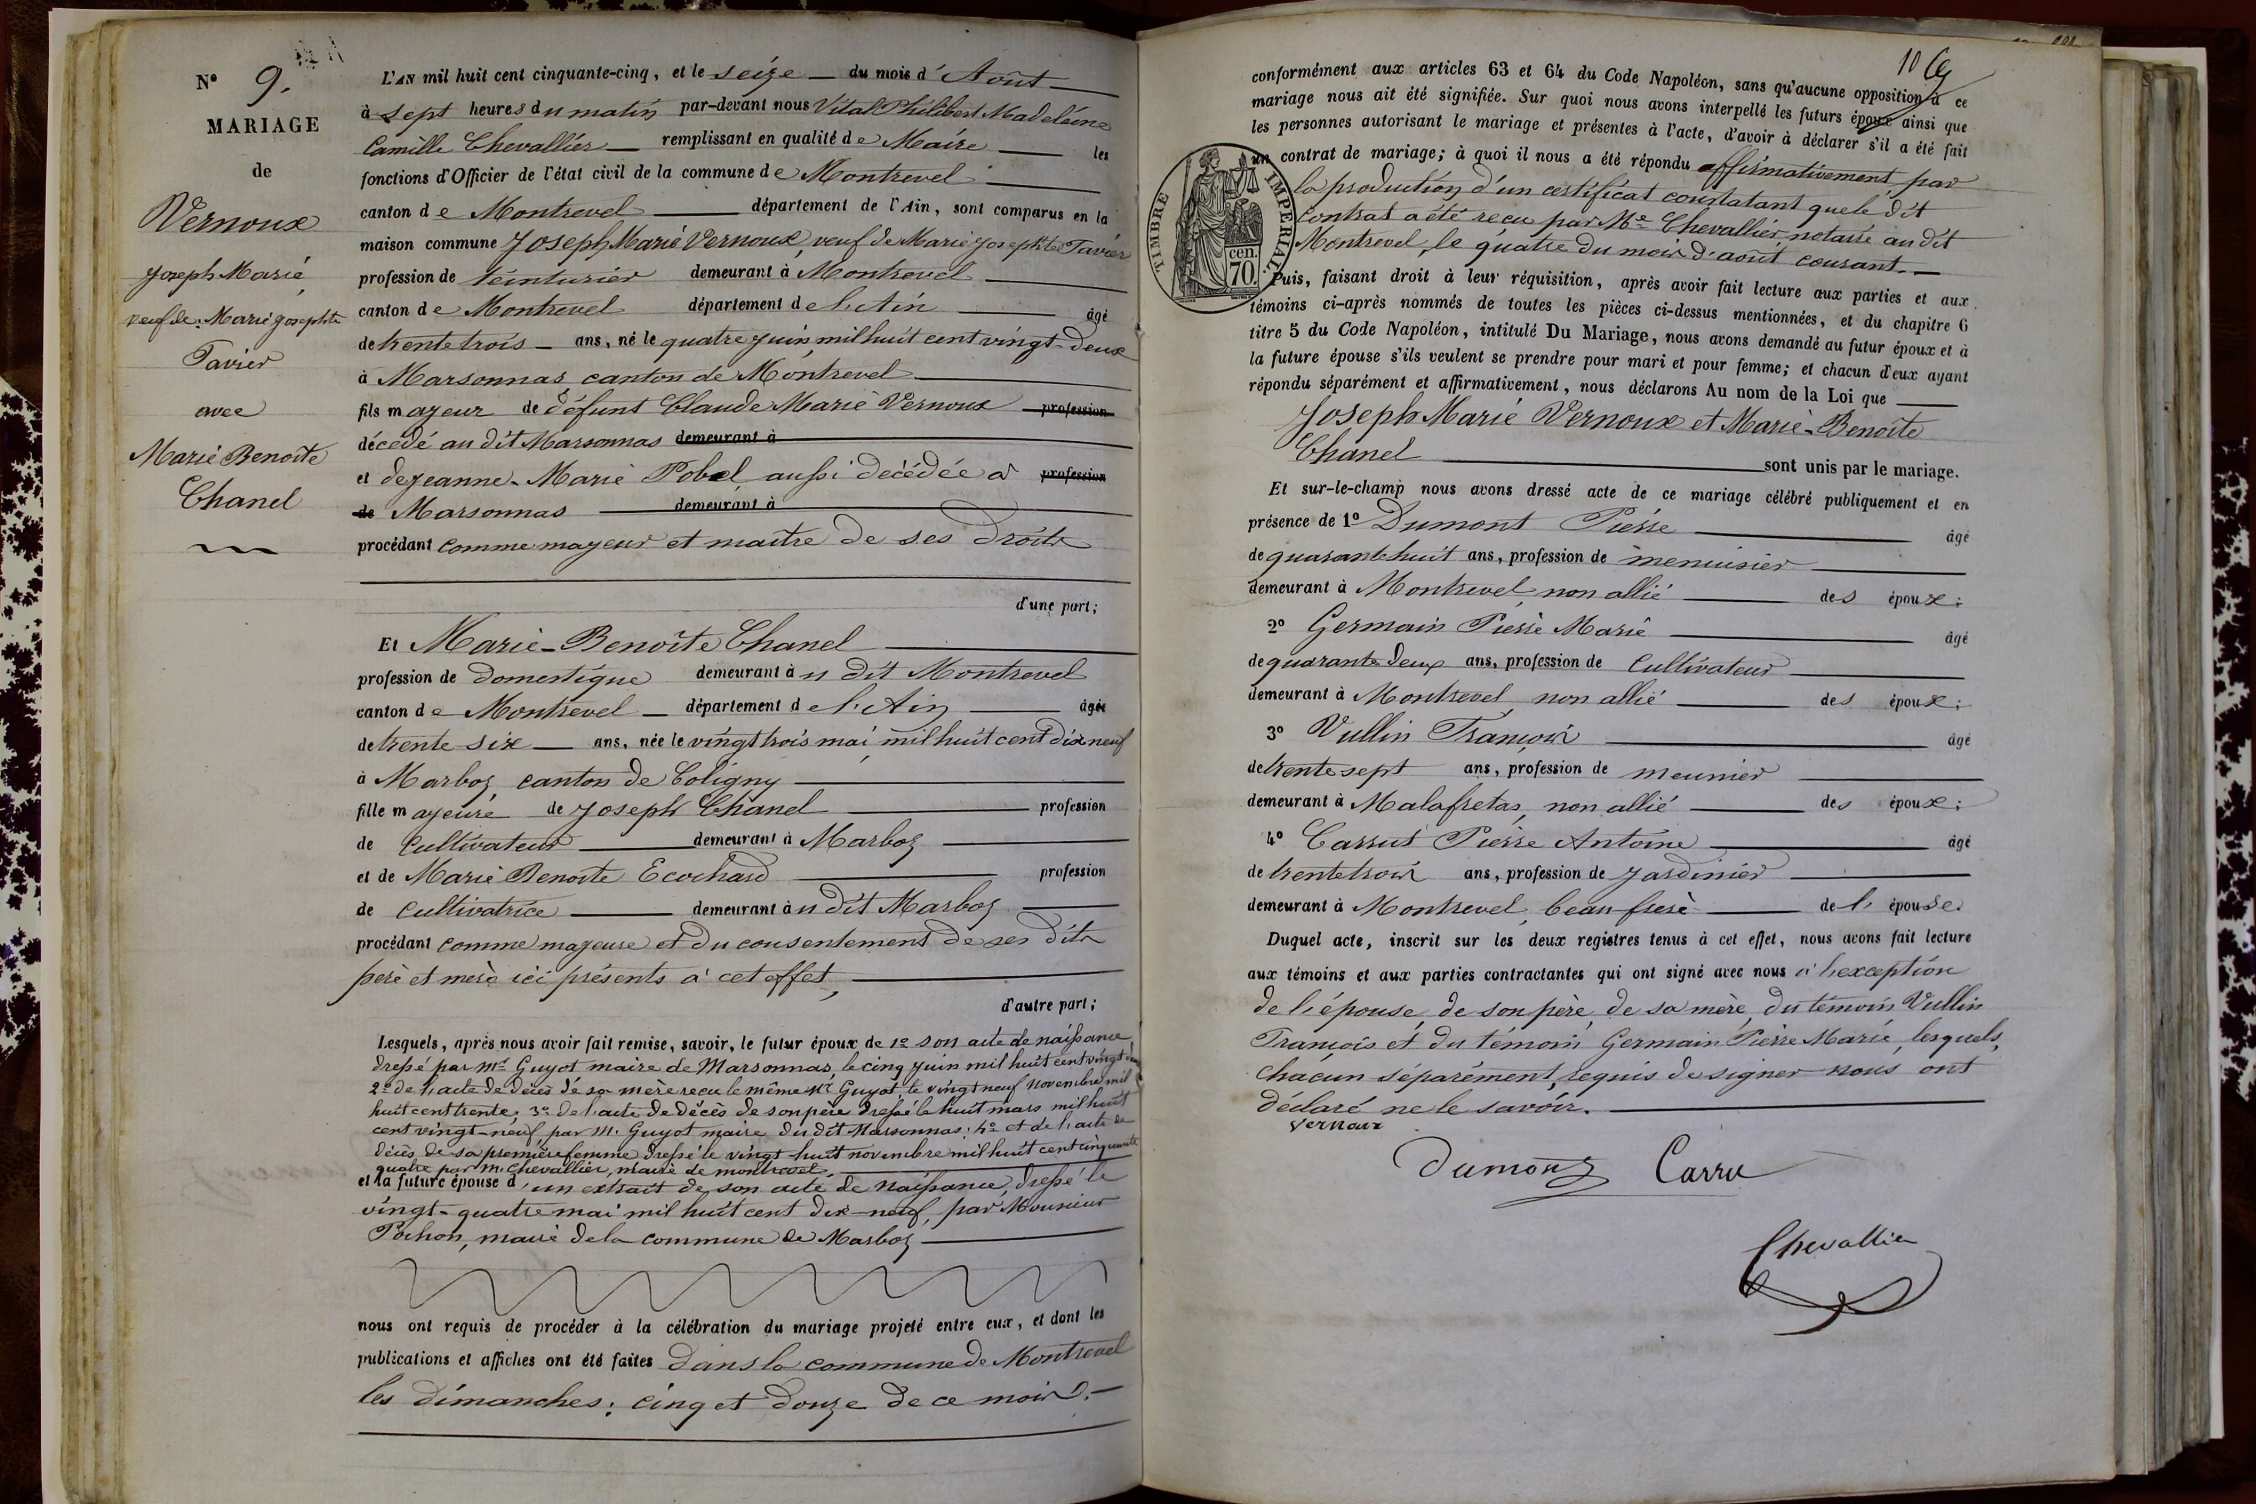 N° 9.
MARIAGE
de
Vernoux
Joseph Marie
veuf de Marie Josephte
Tavier
avec
Marie Benoîte
Chanel
L'AN mil huit cent cinquante-cinq, et le seize du mois d'Août
à sept heures du matin par-devant nous Vital Philibert Madeleine
Camille Chevallier remplissant en qualité de Maire les
fonctions d'Officier de l'état civil de la commune de Montrevel
canton de Montrevel département de l'Ain, sont comparus en la
maison commune Joseph Marie Vernoux, veuf de Marie Josephte Tavier
profession de teinturier demeurant à Montrevel
canton de Montrevel département de l'Ain âgé
de trente trois ans, né le quatre juin mil huit cent vingt-deux
à Marsonnas canton de Montrevel
fils mayeur de défunt Claude Marie Vernoux profession
décédé au dit Marsonnas demeurant à
et de Jeanne-Marie Pobel aussi décédée à profession
de Marsonnas demeurant à
procédant comme mayeur et maître de ses droits
d'une part;
Et Marie-Benoîte Chanel
profession de domestique demeurant au dit Montrevel
canton de Montrevel département de l'Ain âgée
de trente six ans, née le vingt trois mai mil huit cent dix neuf
à Marboz canton de Coligny
fille mayeure de Joseph Chanel profession
de cultivateur demeurant à Marboz
et de Marie Benoite Ecochard profession
de cultivatrice demeurant au dit Marboz
procédant comme mayeure et du consentement de ses dits
père et mère ici présents à cet effet,
d'autre part;
Lesquels, après nous avoir fait remise, savoir, le futur époux de 1° son acte de naissance
dressé par Mr Guyot maire de Marsonnas, le cinq juin mil huit cent vingt deux
2° de l'acte de décès de sa mère reçu le même Mr Guyot, le vingt neuf novembre mil
huit cent trente; 3° de l'acte de décès de son père dressé le huit mars mil huit
cent vingt-neuf, par M. Guyot maire du dit Marsonnas; 4° et de l'acte de
décès de sa première femme dressé le vingt-huit novembre mil huit cent cinquante
quatre par M. Chevallier, maire de Montrevel.
et la future épouse d'un extrait de son acte de naissance, dressé le
vingt-quatre mai mil huit cent dix-neuf, par Monsieur
Pochon, maire de la commune de Marboz
nous ont requis de procéder à la célébration du mariage projeté entre eux, et dont les
publications et affiches ont été faites dans la commune de Montrevel
les dimanches: cinq et douze de ce mois.
10
conformément aux articles 63 et 64 du Code Napoléon, sans qu'aucune opposition à ce
mariage nous ait été signifiée. Sur quoi nous avons interpellé les futurs époux ainsi que
les personnes autorisant le mariage et présentes à l'acte, d'avoir à déclarer s'il a été fait
un contrat de mariage; à quoi il nous a été répondu affirmativement par
la production d'un certificat constatant que le dit
contrat a été reçu par Me Chevallier notaire au dit
Montrevel, le quatre du mois d'août courant.
TIMBRE IMPERIAL.
cen.
70.
Puis, faisant droit à leur réquisition, après avoir fait lecture aux parties et aux
témoins ci-après nommés de toutes les pièces ci-dessus mentionnées, et du chapitre 6
titre 5 du Code Napoléon, intitulé Du Mariage, nous avons demandé au futur époux et à
la future épouse s'ils veulent se prendre pour mari et pour femme; et chacun d'eux ayant
répondu séparément et affirmativement, nous déclarons Au nom de la Loi que
Joseph Marie Vernoux et Marie-Benoîte
Chanel sont unis par le mariage.
Et sur-le-champ nous avons dressé acte de ce mariage célébré publiquement et en
présence de 1° Dumont Pierre âgé
de quarante-huit ans, profession de menuisier
demeurant à Montrevel, non allié des époux;
2° Germain Pierre Marie âgé
de quarante deux ans, profession de cultivateur
demeurant à Montrevel, non allié des époux;
3° Vullin François âgé
de trente sept ans, profession de meunier
demeurant à Malafretas, non allié des époux;
4° Carrut Pierre Antoine âgé
de trente trois ans, profession de jardinier
demeurant à Montrevel, beau frère de l'épouse.
Duquel acte, inscrit sur les deux registres tenus à cet effet, nous avons fait lecture
aux témoins et aux parties contractantes qui ont signé avec nous à l'exception
de l'épouse, de son père, de sa mère, du témoin Vullin
François et du témoin Germain Pierre Marie, lesquels,
chacun séparément, requis de signer nous ont
déclaré ne le savoir.
Vernoux
Dumont Carru
Chevallier